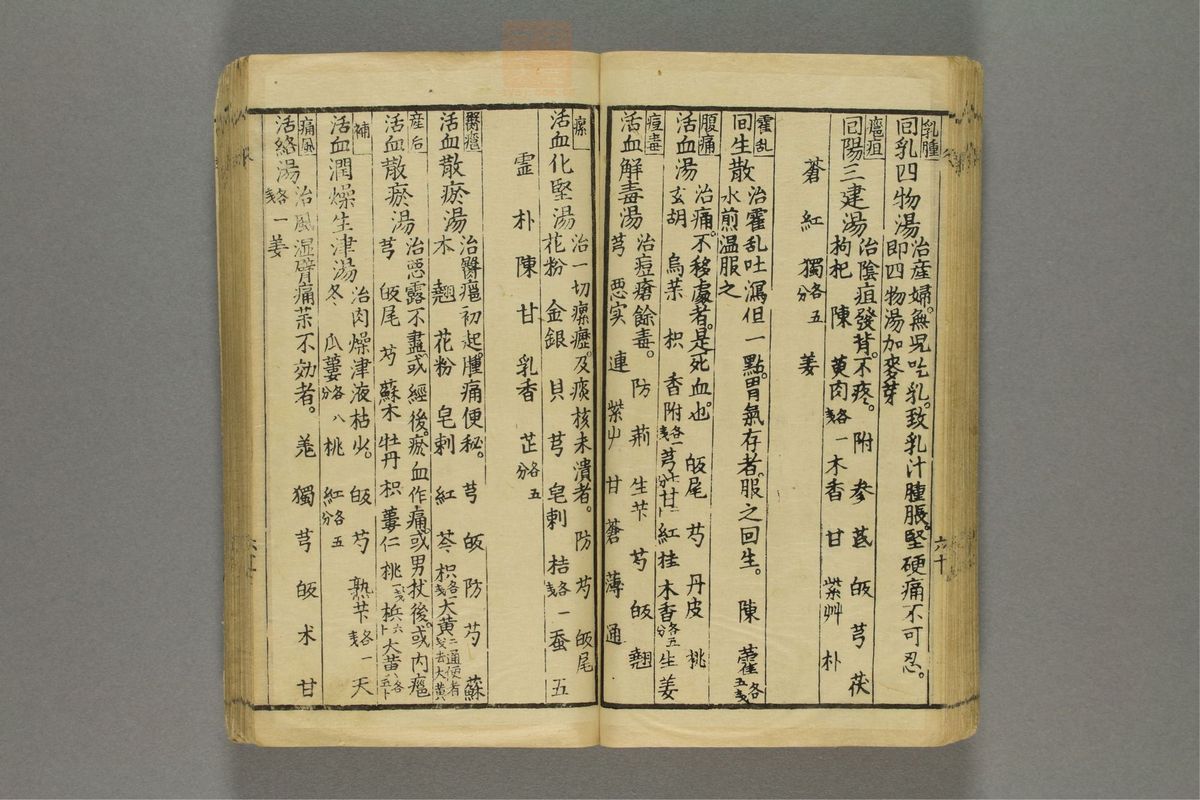 乳腫
回乳四物湯
治産婦。無児吃乳。致乳汁腫脹。堅硬痛不可忍。
即四物湯加麥芽
癰疽
回陽三建湯
治陰疽發背。不疼。附 參 芪 皈 芎 茯
枸杞 陳 萸肉各一戔 木香 甘 紫艸 朴
蒼 紅 獨各五分 姜
霍乱
回生散
治霍乱吐瀉但一點。胃氣存者。服之回生。陳 藿各五戔
水煎温服之
腹痛
活血湯
治痛。不移處者。是死血也。皈尾 芍 丹皮 桃
玄胡 烏茱 枳 香附各一戔 芎 甘 紅 桂 木香各五分 生姜
痘毒
活血解毒湯
治痘瘡餘毒。防 荊 生芐 芍 皈 翹
芎 惡实 連 紫屮 甘 蒼 薄 通
瘰
活血化堅湯
治一切瘰癧。及痰核未潰者。防 芍 皈尾
花粉 金銀 貝 芎 皂刺 桔各一戔 蚕 五
霊 朴 陳 甘 乳香 芷各五分
臀癰
活血散瘀湯
治臀癰初起。腫痛便秘。芎 皈 防 芍 蘇
木 翹 花粉 皂刺 紅 芩 枳各一戔 大黄二戔通便者去大黄
産后
活血散瘀湯
治惡露不盡。或經後。瘀血作痛。或男杖後。或内癰
芎 皈尾 芍 蘇木 牡丹 枳 蔞仁 桃一戔 梹六 大黄
補
活血潤燥生津湯
治内燥津液枯少。皈 芍 熟芐各一戔 天
冬 瓜蔞各八分 桃 紅各五分
痛風
活絡湯
治風湿臂痛茱不効者。羗 獨 芎 皈 木 甘
各一戔 姜
六十